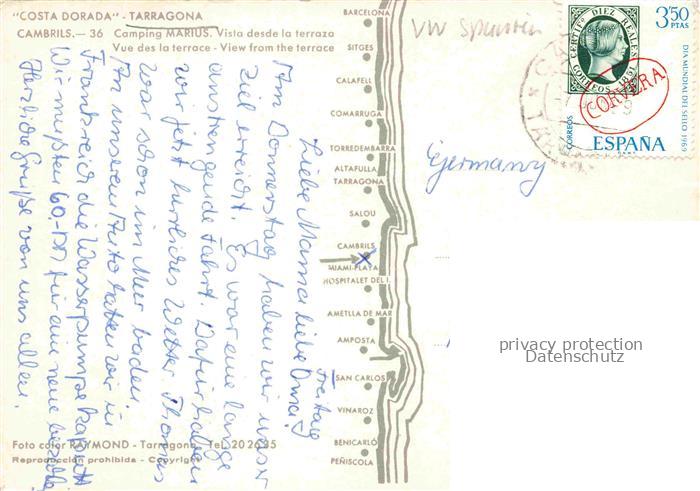 "COSTA DORADA" - TARRAGONA
CAMBRILS.— 36 Camping MARIUS. Vista desde la terraza
Vue des la terrace - View from the terrace
VW Spanien
3'50
PTAS
CERTIFº DIEZ REALES
CORREOS 1851
CORVERA
DIA MUNDIAL DEL SELLO 1969
CORREOS
ESPAÑA
BARCELONA
SITGES
CALAFELL
COMARRUGA
TORREDEMBARRA
ALTAFULLA
TARRAGONA
SALOU
CAMBRILS
MIAMI-PLAYA
HOSPITALET DEL I.
AMETLLA DE MAR
AMPOSTA
SAN CARLOS
VINAROZ
BENICARLÓ
PEÑISCOLA
Freitag
Liebe Mama, liebe Oma!
Am Donnerstag haben wir unser
Ziel erreicht. Es war eine lange
anstrengende Fahrt. Dafür haben
wir jetzt herrliches Wetter. Thomas
war schon im Meer baden.
An unserem Auto hatten wir in
Frankreich die Wasserpumpe kaputt
Wir mußten 60,-DM für eine neue bezahlen
Herzliche Grüße von uns allen!
Germany
privacy protection
Datenschutz
Foto color RAYMOND - Tarragona Tel. 20 26 35
Reproducción prohibida - Copyright